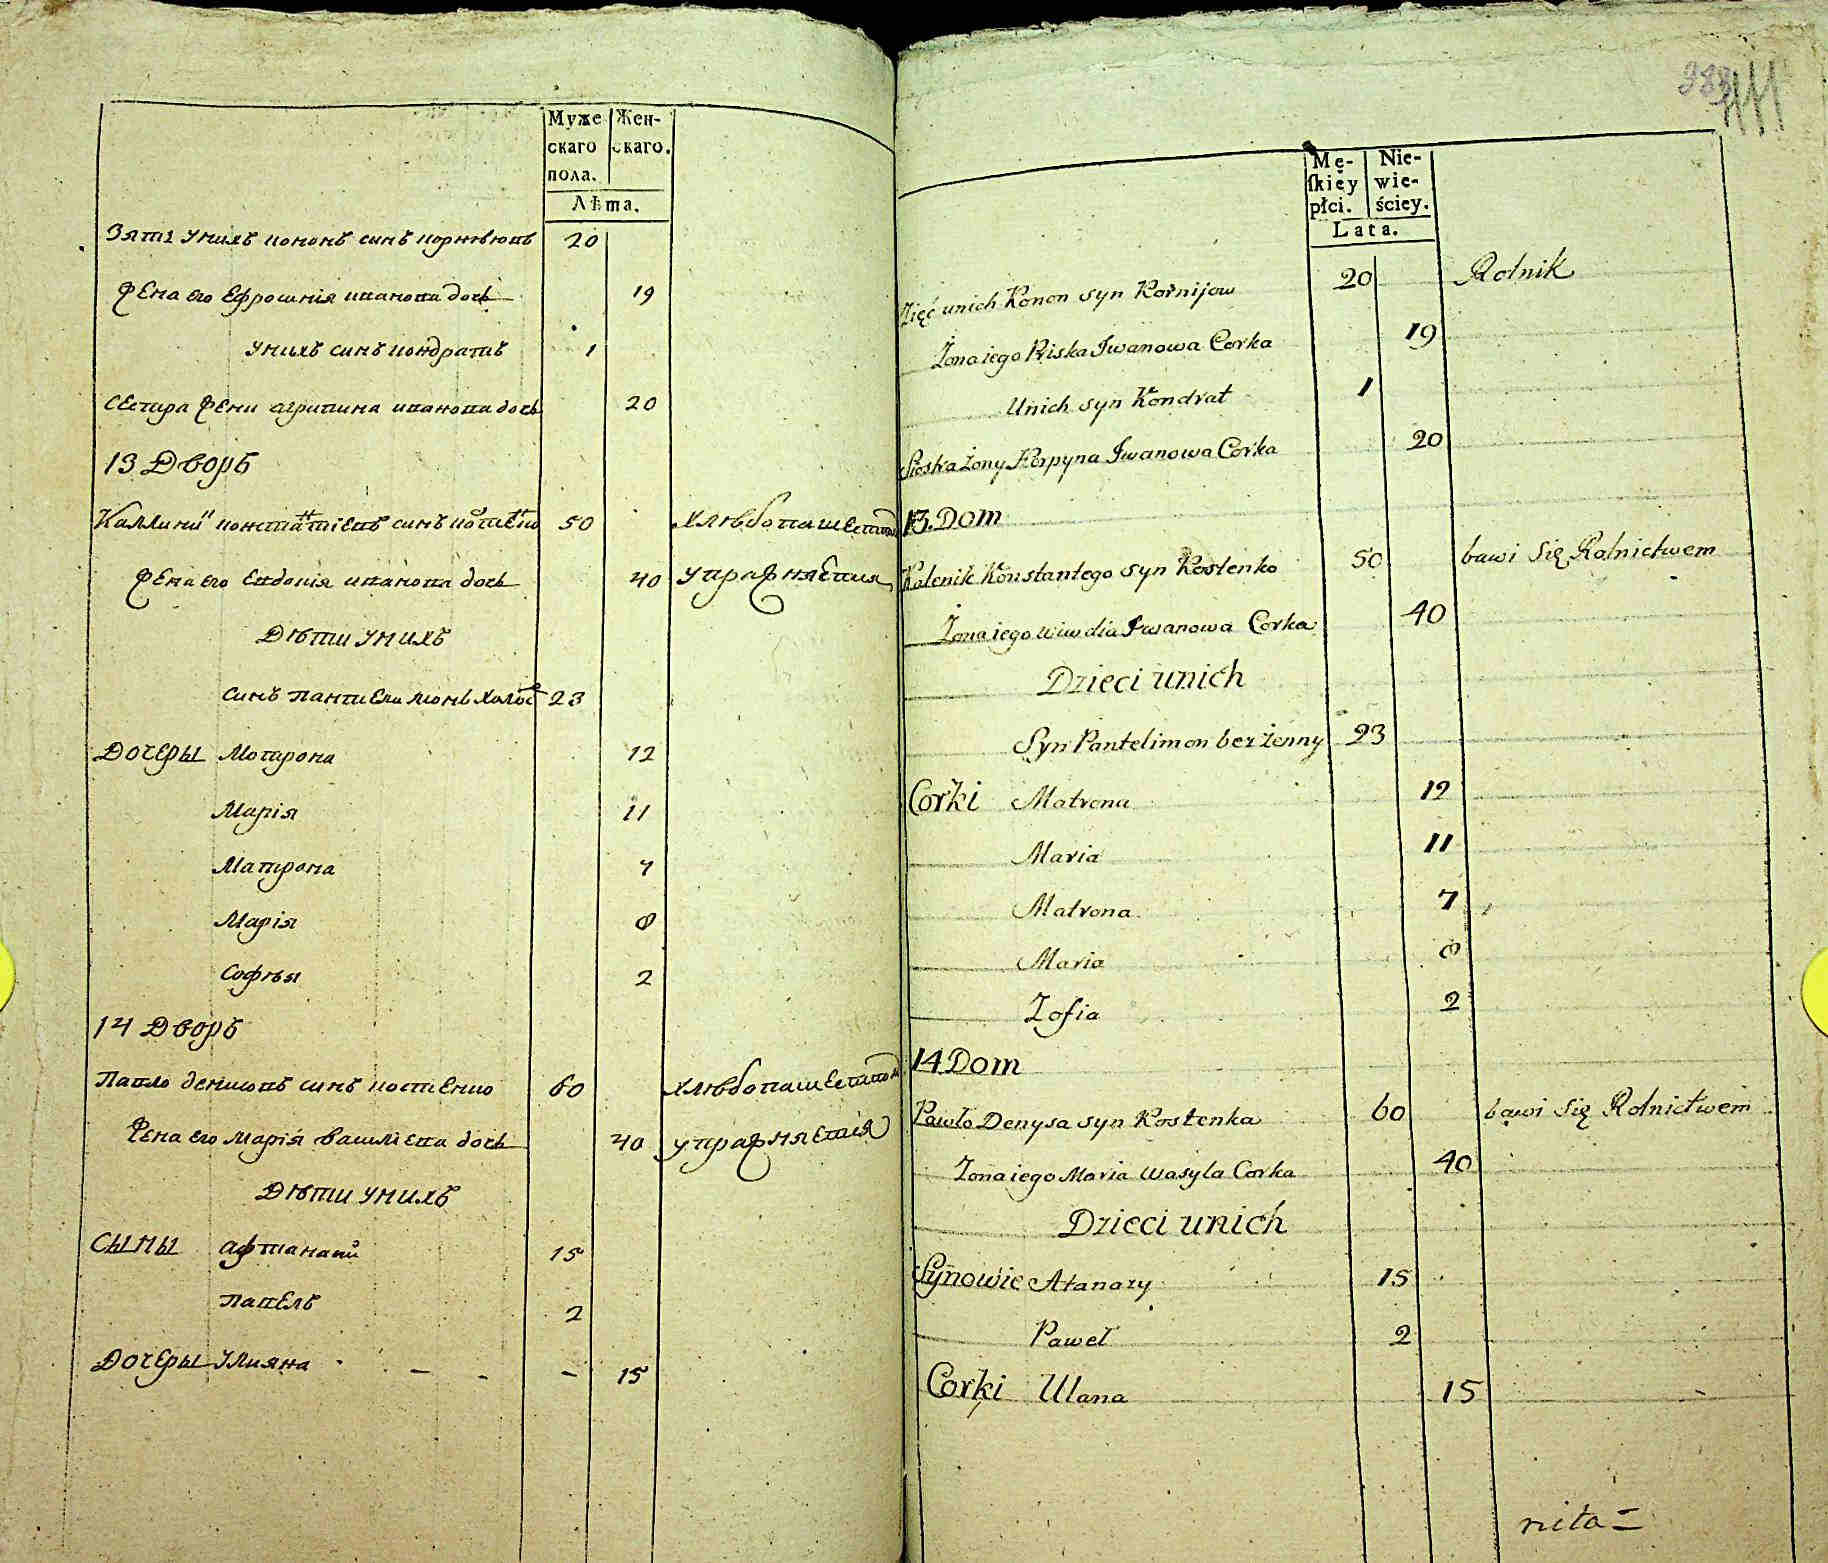 Муже
скаго
пола.
Жен-
скаго.
Лѣта.
Зять унихъ кононъ синъ корнѣювъ 20
Жена его Ефросинія иванова дочь 19
унихъ синъ кондратъ 1
Сестра жени агрипина иванова дочь 20
13 Дворъ
Каллиникъ константіевъ синъ костенко 50 хлѣбопашествомъ
Жена его Евдокія иванова дочь 40 упражняется
Дѣти унихъ
синъ пантиелимонъ холос 23
Дочеры Мотрона 12
Марія 11
Матрона 7
Марія 8
Софѣя 2
14 Дворъ
Павло денисовъ синъ костенко 60 хлѣбопашеством
Жена его Марія василіева дочь 40 упражняется
Дѣти унихъ
Сыны афтанасій 15
павелъ 2
Дочеры Улияна - - - 15
983
Mę-
skiey
płci.
Nie-
wie-
ściey.
Lata.
Zięć unich Konon syn Kornijow 20 Rolnik
Żona iego Priska Iwanowa Corka 19
Unich syn Kondrat 1
Siostra żony Horpyna Iwanowa Corka 20
13. Dom
Kalenik Konstantego syn Kostenko 50 bawi się Rolnictwem
Żona iego wiwdia Iwanowa Corka 40
Dzieci unich
Syn Pantelimon bezżenny 23
Corki Matrona 12
Maria 11
Matrona 7
Maria 8
Zofia 2
14 Dom
Pawło Denysa syn Kostenka 60 bawi się Rolnictwem
Żona iego Maria Wasyla Corka 40
Dzieci unich
Synowie Atanazy 15
Paweł 2
Corki Ulana 15